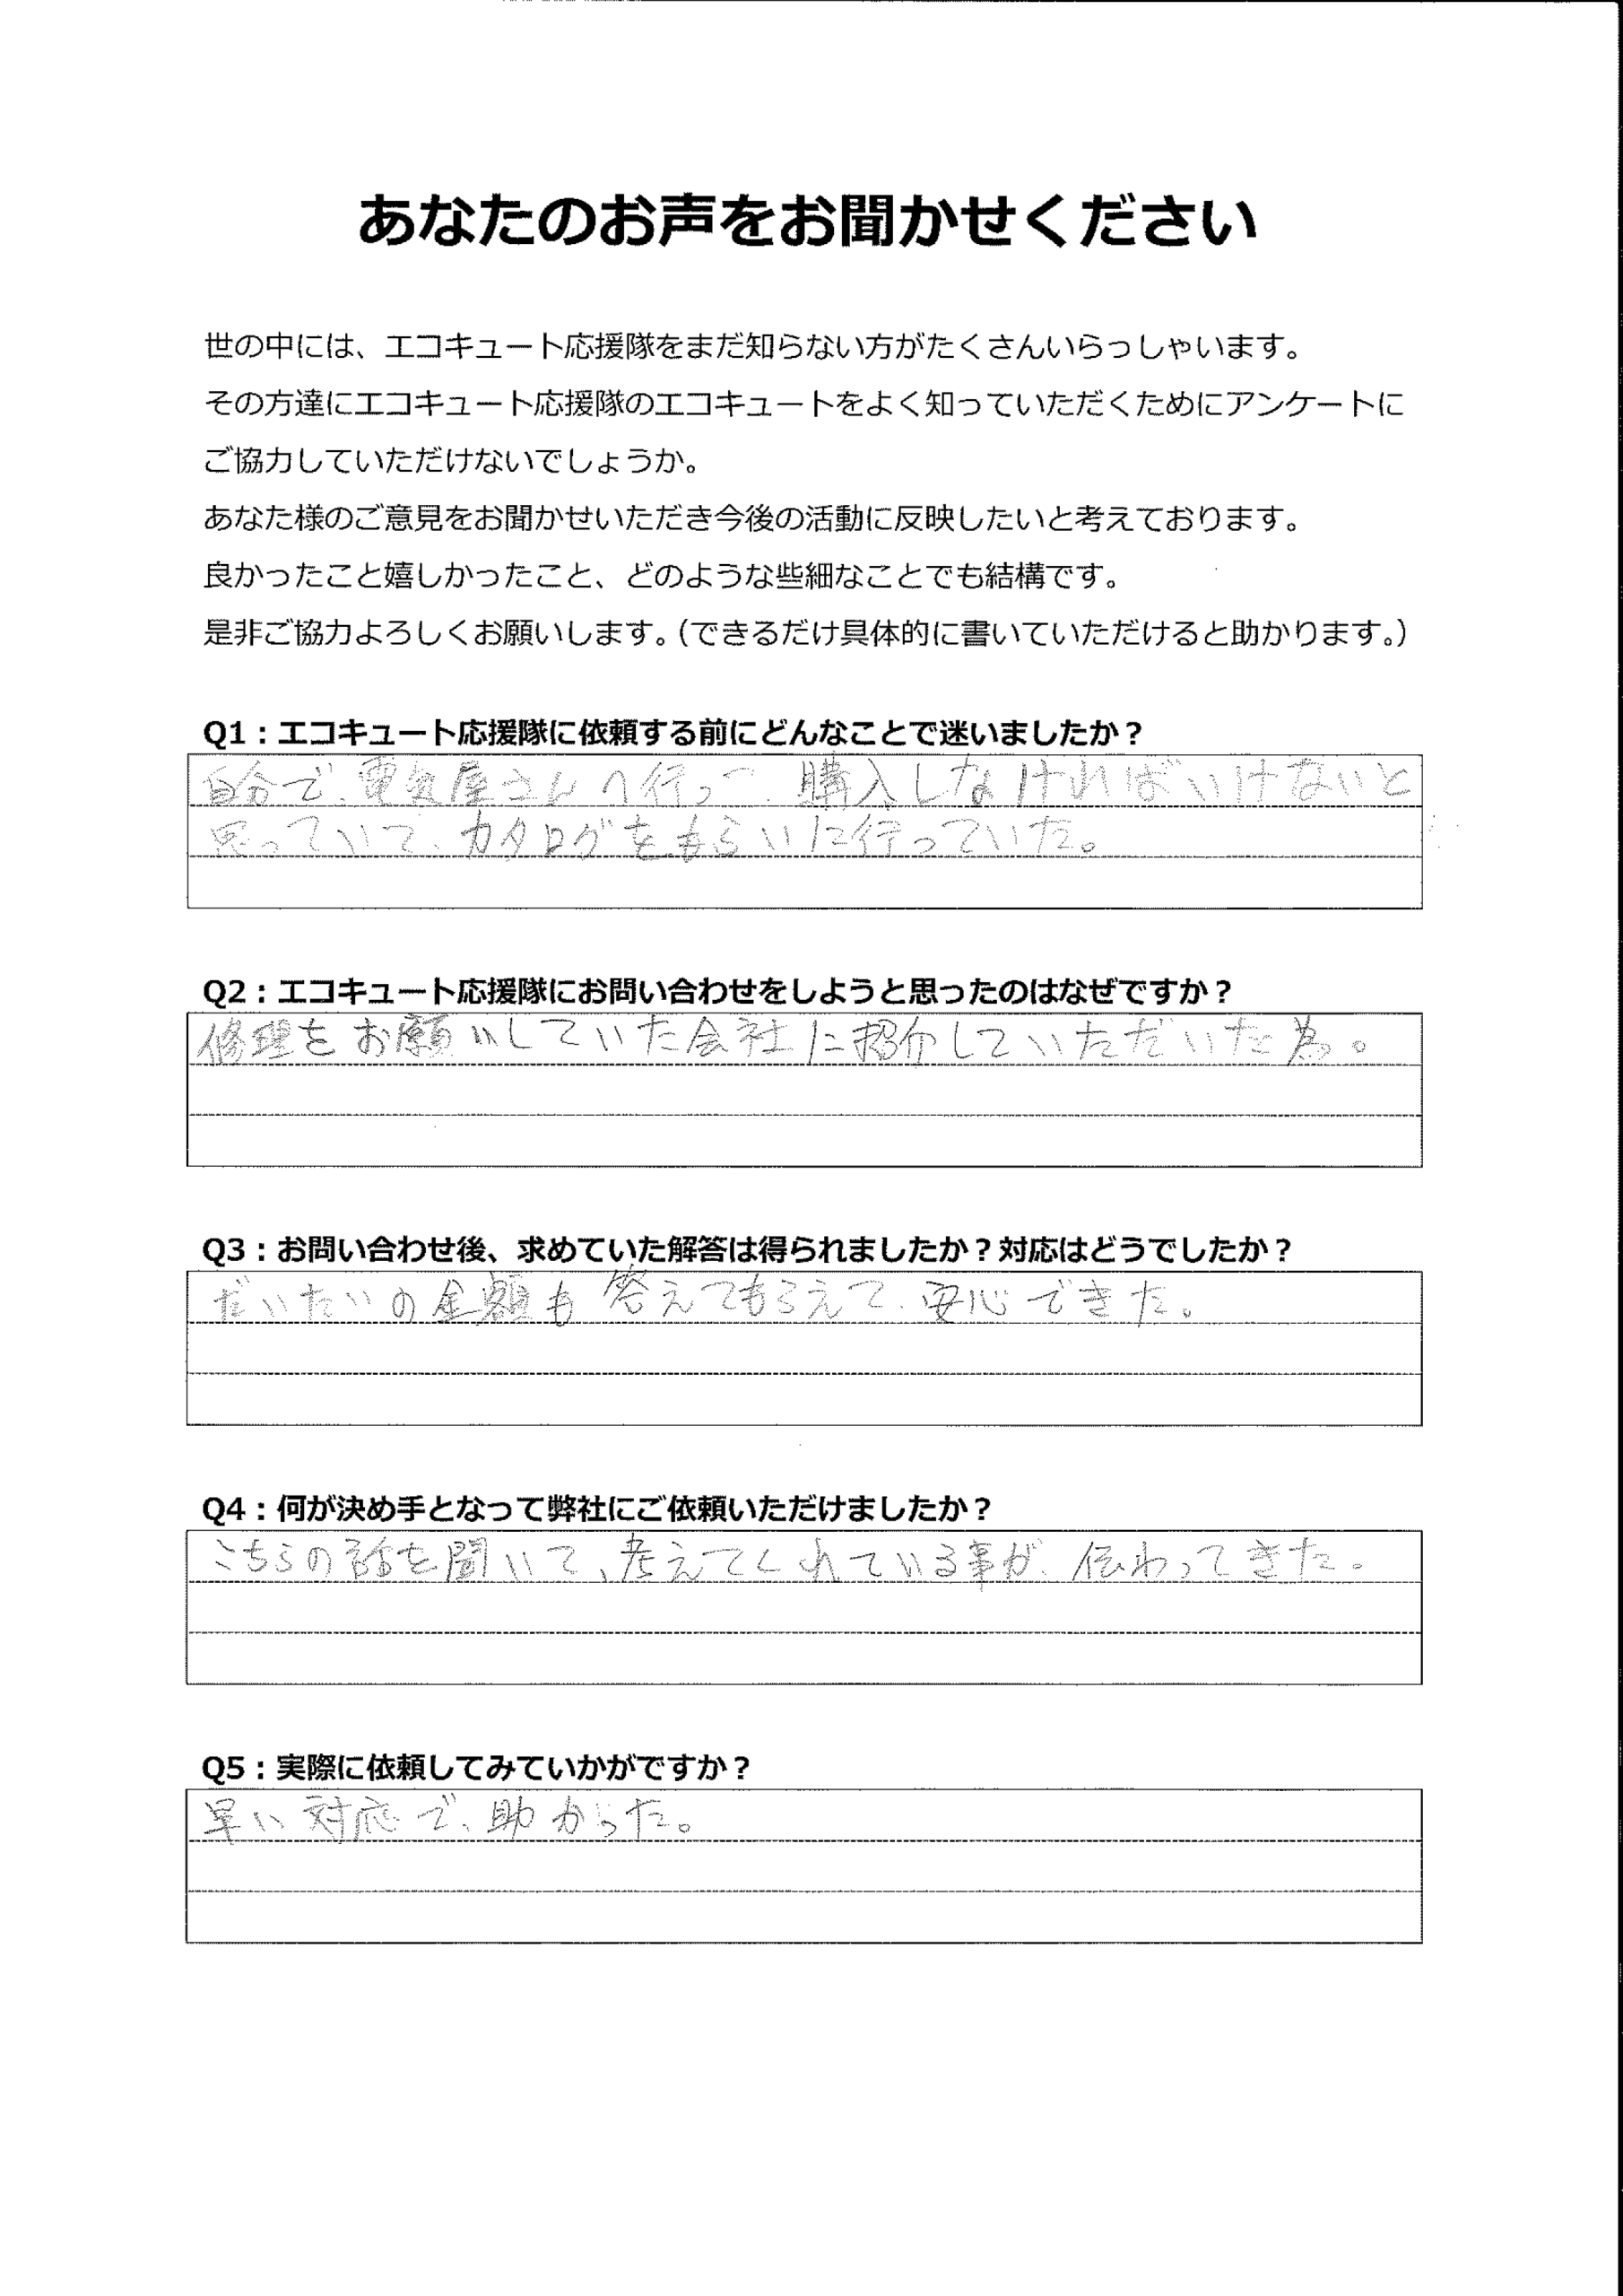 あなたのお声をお聞かせください
世の中には、エコキュート応援隊をまだ知らない方がたくさんいらっしゃいます。
その方達にエコキュート応援隊のエコキュートをよく知っていただくためにアンケートに
ご協力していただけないでしょうか。
あなた様のご意見をお聞かせいただき今後の活動に反映したいと考えております。
良かったこと嬉しかったこと、どのような些細なことでも結構です。
是非ご協力よろしくお願いします。（できるだけ具体的に書いていただけると助かります。）
Q1：エコキュート応援隊に依頼する前にどんなことで迷いましたか？
自分で、電気屋さんへ行って、購入しなければいけないと
思っていて、カタログをもらいに行っていた。
Q2：エコキュート応援隊にお問い合わせをしようと思ったのはなぜですか？
修理をお願いしていた会社に紹介していただいた為。
Q3：お問い合わせ後、求めていた解答は得られましたか？対応はどうでしたか？
だいたいの金額も答えてもらえて、安心できた。
Q4：何が決め手となって弊社にご依頼いただけましたか？
こちらの話を聞いて、考えてくれている事が、伝わってきた。
Q5：実際に依頼してみていかがですか？
早い対応で、助かった。